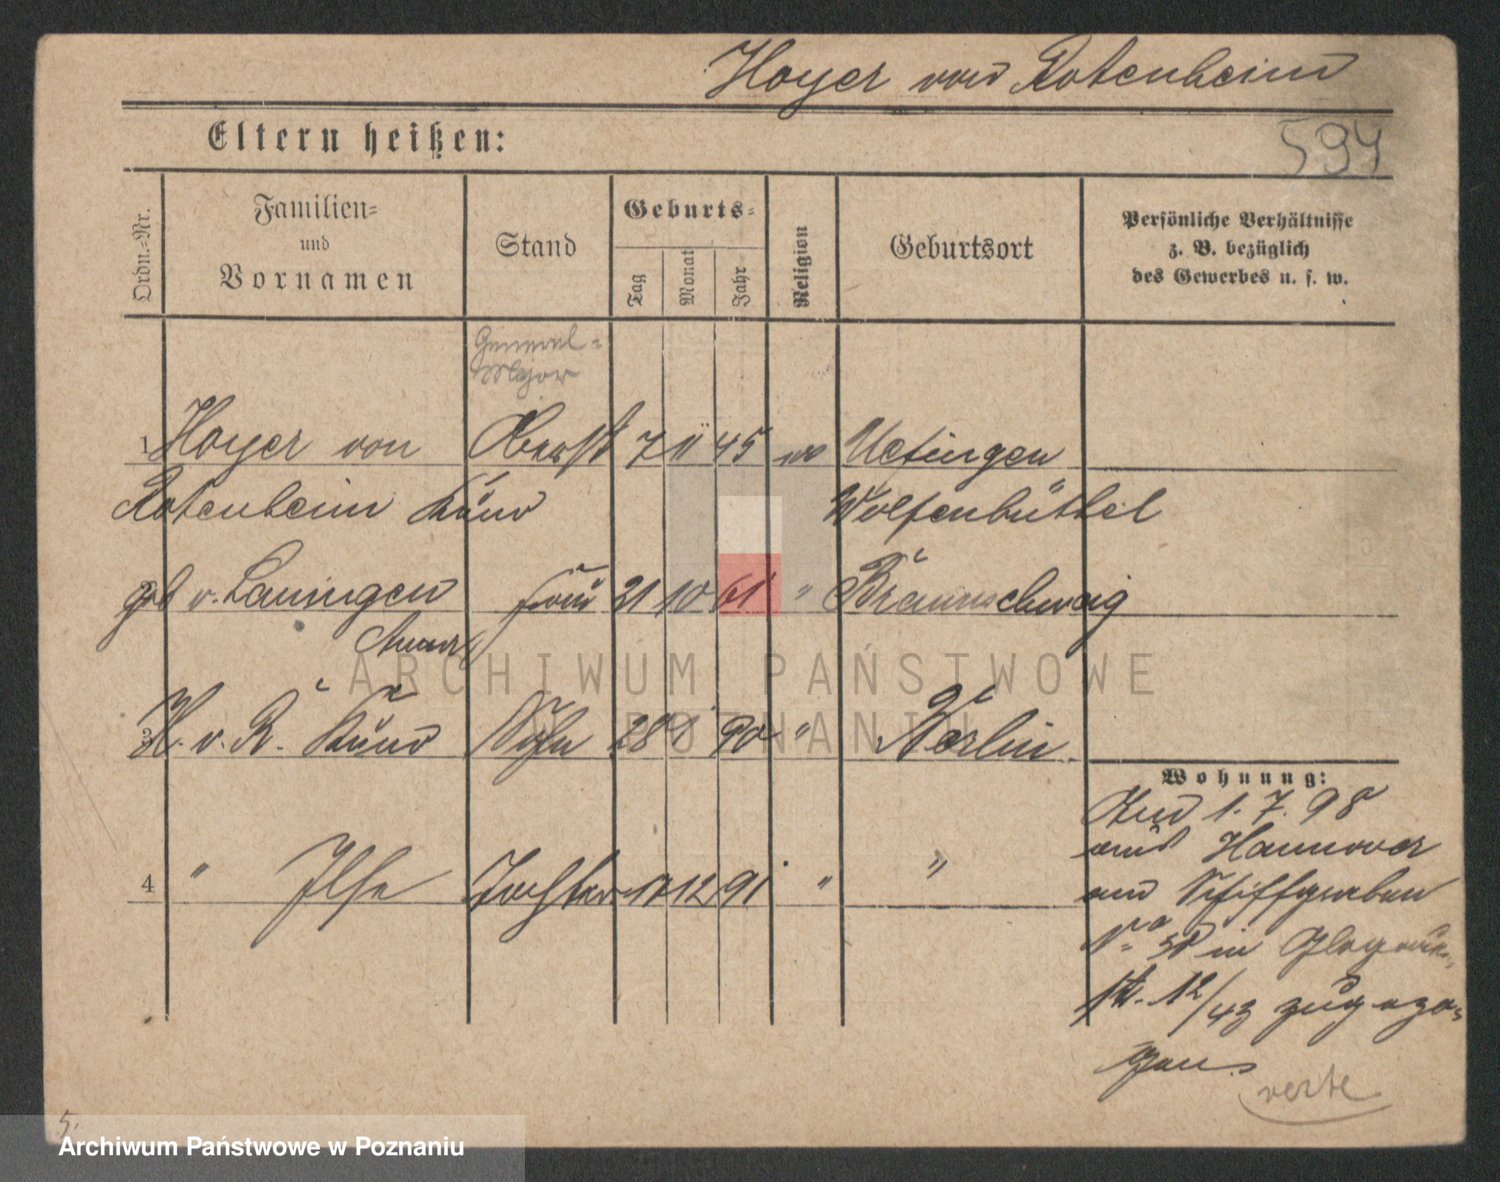 Hoyer von Rotenheim
594
Eltern heißen:
Ordn.-Nr.
Familien-
und
Vornamen
Stand
Geburts-
Tag
Monat
Jahr
Religion
Geburtsort
Persönliche Verhältnisse
z. B. bezüglich
des Gewerbes u. s. w.
General-
Major
1 Hoyer von Oberst 7 11 45 ev Uefingen
Rotenheim Kuno Wolfenbüttel
2 geb v. Lauingen Frau 21 10 61 " Braunschweig
3 H. v. R. Kuno Sohn 28 90 " Berlin
Wohnung:
4 " Ilse Tochter 12 91 " "
Am 1. 7. 98
aus Hannover
am Schiffgraben
No in Glogauer-
str. 12/43 zugezo-
gen.
verte
5.
ARCHIWUM PAŃSTWOWE
W POZNANIU
Archiwum Państwowe w Poznaniu